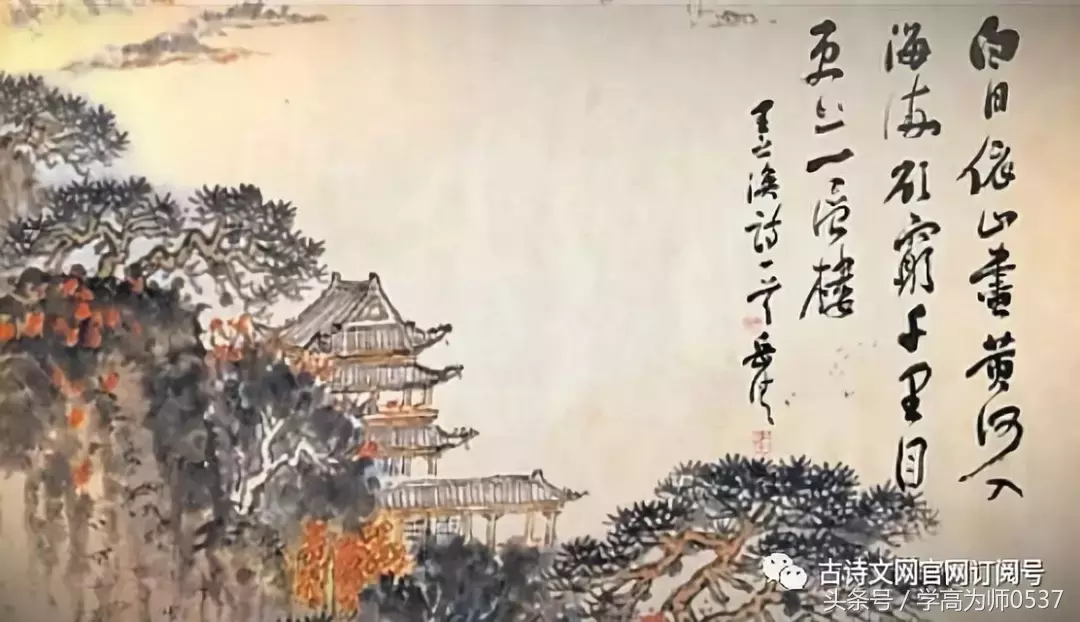 白日依山盡黄河入
海流欲窮千里目
更上一層樓
王之渙詩一首
古诗文网官网订阅号
头条号 / 学高为师0537